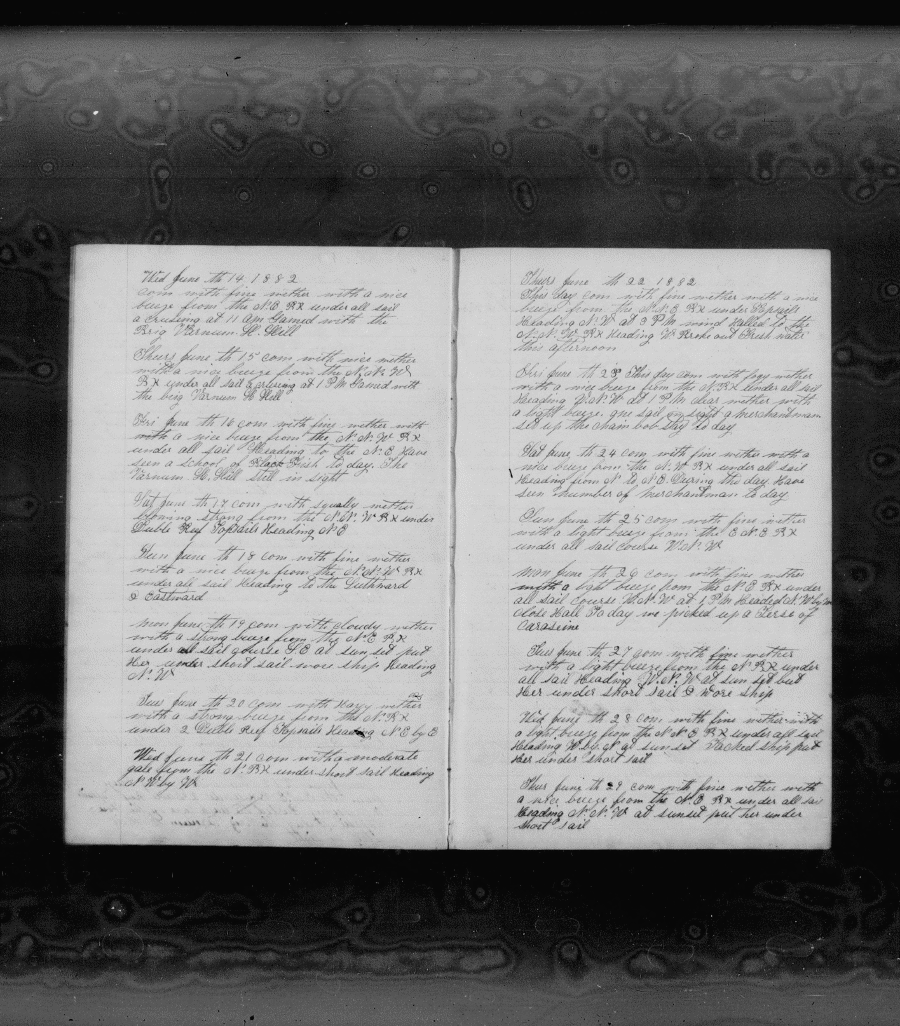 Wed June th 14, 1882
com with fine wether with a nice
breze from the N. E. Bx under all sail
a Cruising at 11 Am Gamed with the
Brig Varnum H. Hill
Thurs June th 15 com with nice wether
with a nice breze from the N. N. W
Bx under all sail a Cruising at 1 PM Gamed with
the brig Varnum H Hill
Fri June th 16 com with fine wether with
with a nice breze from the N. N. W Bx
under all sail Heading to the N. E Have
seen a school of Black Fish to day. The
Varnum H. Hill still in sight
Sat June th 17 com with squally wether
Bloing strong from the N. N. W Bx under
Duble Reef Topsails Heading N E
Sun June th 18 com with fine wether
with a nice breze from the N. N. W Bx
under all sail Heading to the Suthward
& Eastward
mon June th 19 com with cloudy wether
with a strong breze from the N. E Bx
under all sail course S E at sun set put
Her under short sail wore ship Heading
N. W
Tue June th 20 com with Hazy wether
with a strong breze from the N. Bx
under 2 Duble Reef Topsails Heading N E by E
Wed June th 21 com with a moderate
gale from the N. Bx under short sail Heading
N W by W
Thurs June th 22 1882
Thes Day com with fine wether with a nice
breze from the N. N. E Bx under Topsails
Heading N. W at 3 P M wind Halled to the
N. N. W Bx Heading W Broke out Fresh water
this afternoon
Fri June th 23 This day com with fogy wether
with a nice breze from the N. Bx under all sail
Heading W. N. W at 1 P M clear wether with
a light breze. one sail in sight a merchantman
set up the chain bob stay to day
Sat June th 24 com with fine wether with a
nice breze from the N. W Bx under all sail
Heading from N. to N. E. During the day Have
seen number of merchantman to day
Sun June th 25 com with fine wether
with a light breze from the E N. E Bx
under all sail Course W. N. W
mon June th 26 com with fine wether
with a light breze from the N. E Bx under
all sail Course W. N. W at 1 P M Headed N. W by W
close Hall To day we picked up a Terse of
Caraseine
Tues June th 27 com with fine wether
with a light breze from the N. Bx under
all sail Heading W. N. W at sun set put
Her under short sail & wore ship
Wed June th 28 com with fine wether with
a light breze from the N N. E Bx under all sail
Heading W by N at sun set Tacked ship put
Her under short sail
Thus June th 29 com with fine wether with
a nice breze from the N. E Bx under all sail
Heading N. N. W at sunset put her under
short sail